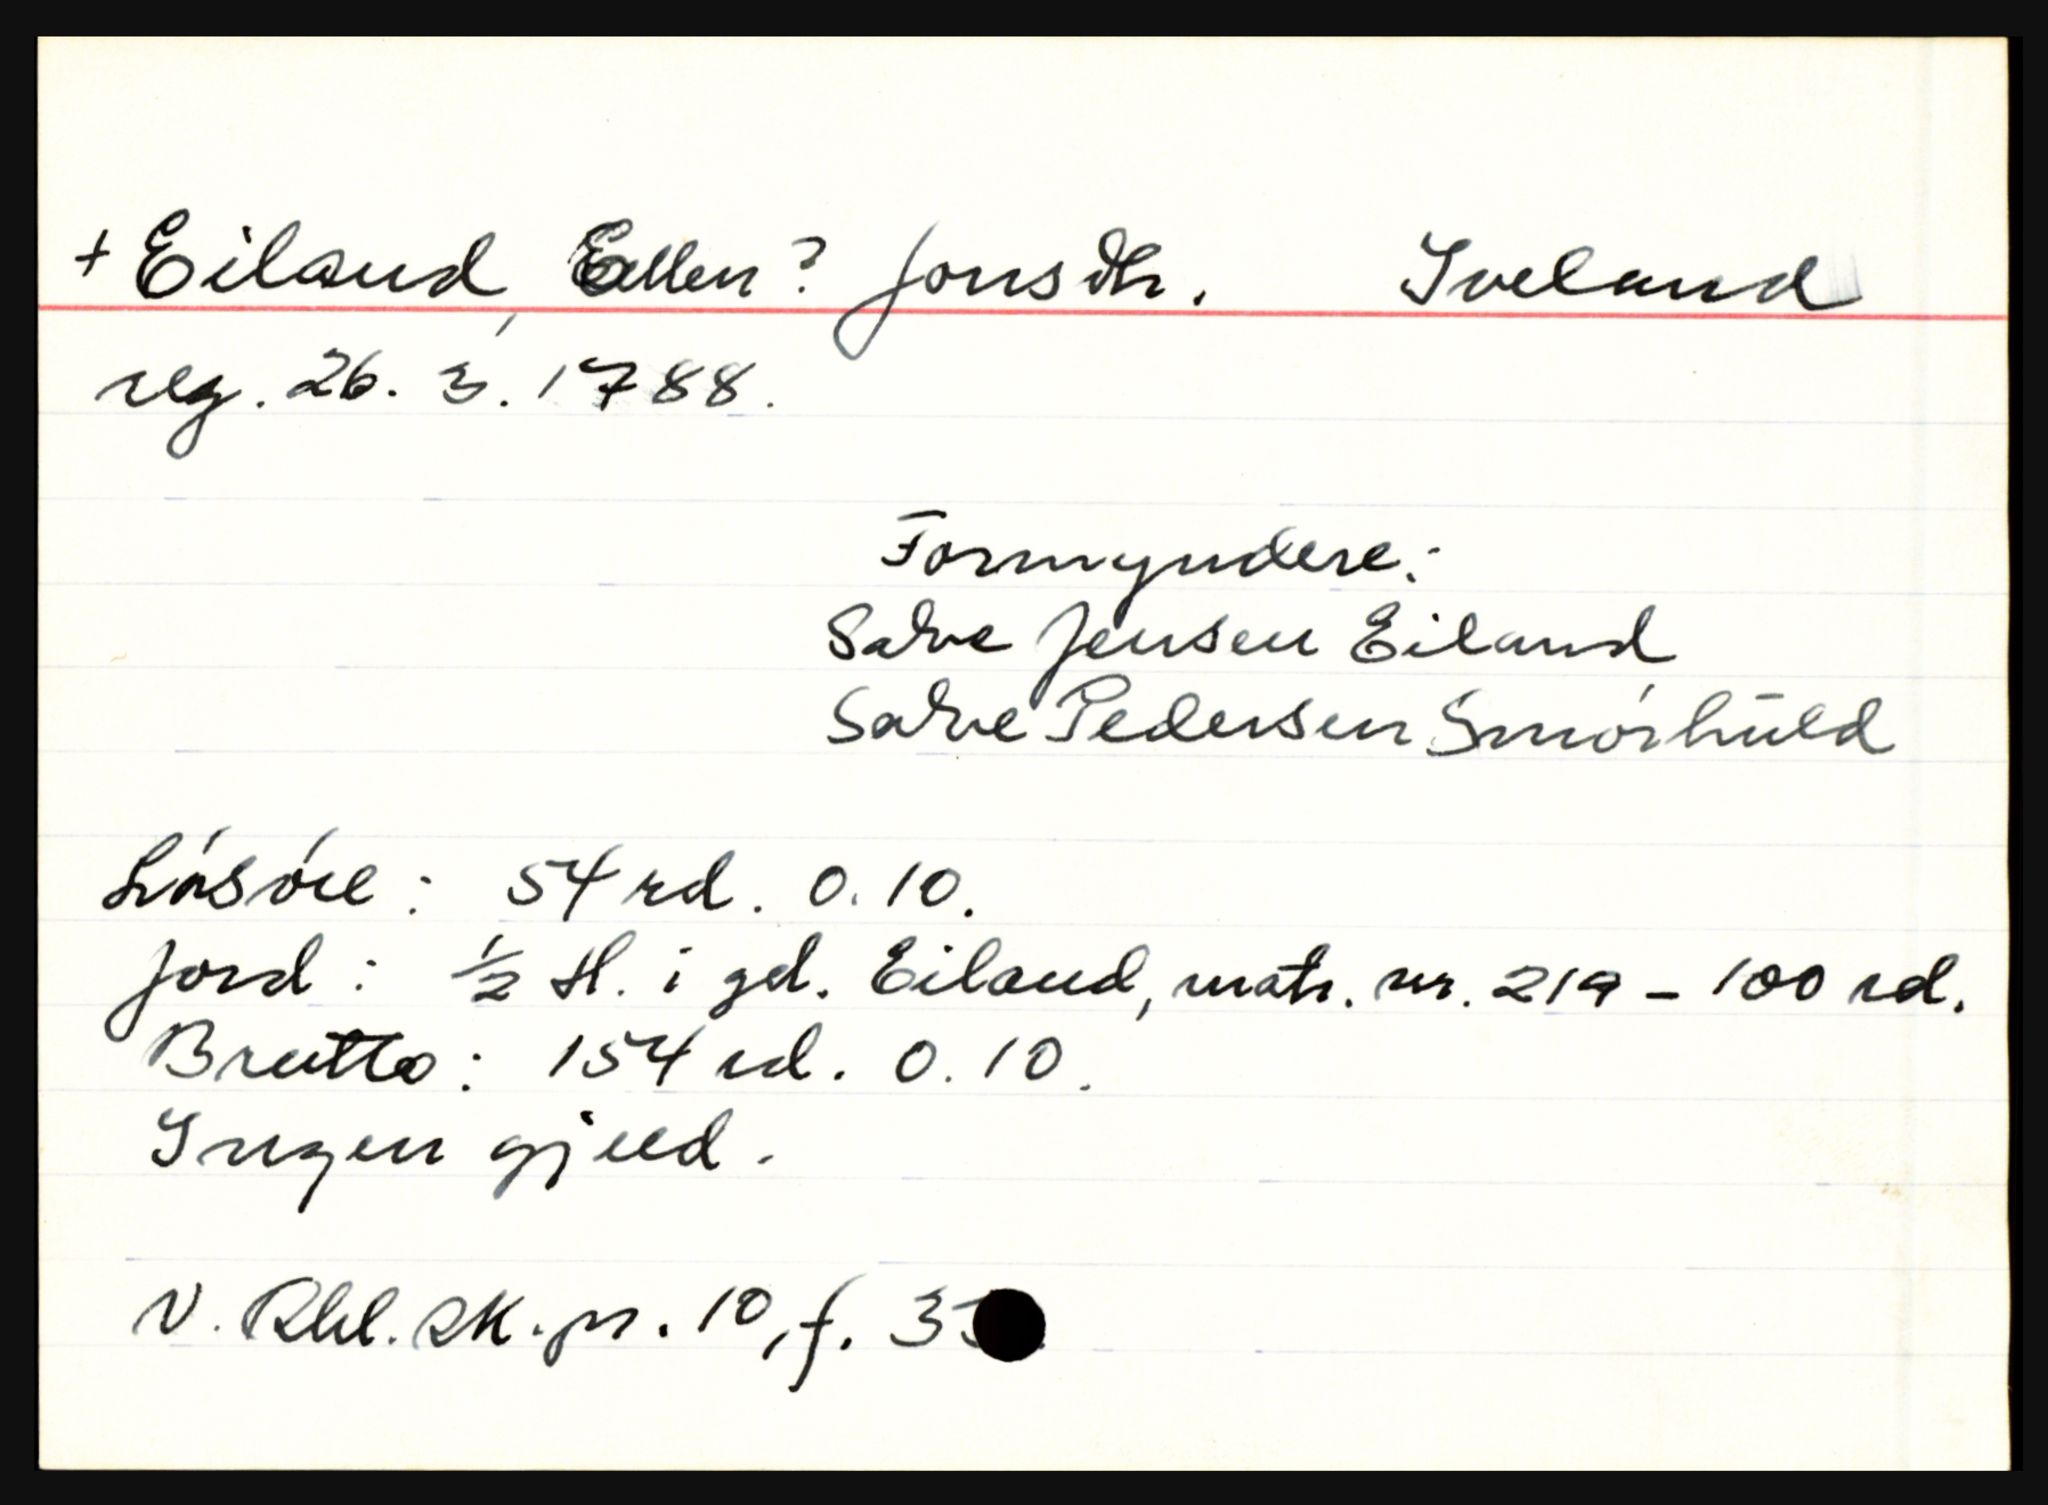 + Eiland, Ellen? Jonsdtr. Iveland
reg. 26. 3. 1788.
Formyndere:
Salve Jensen Eiland
Salve Pedersen Smórhúld
Lósóre: 54 rd. 0. 10.
Jord: ½ hl. i gd. Eiland, matr. nr. 219 - 100 rd.
Brutto: 154 rd. 0. 10.
Ingen gjeld.
N. Rbl. sk. pr. 10, f. 3